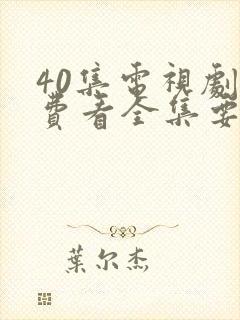 40集電視劇
費看全集要
葉尔杰